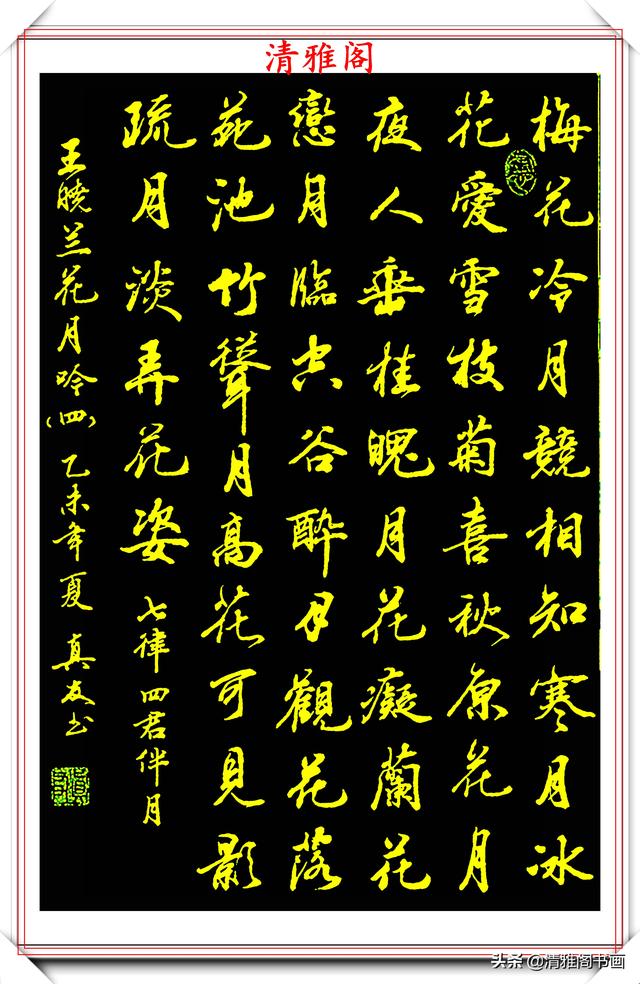 清雅阁
梅花冷月競相知寒月冰
花愛雪枝菊喜秋原花月
夜人垂桂魄月花癡蘭花
戀月臨空谷醉月觀花落
苑池竹聳月高花可見影
疏月淡弄花姿 七律四君伴月
王晓兰花月吟(四) 乙未年夏 真友书
头条@清雅阁书画